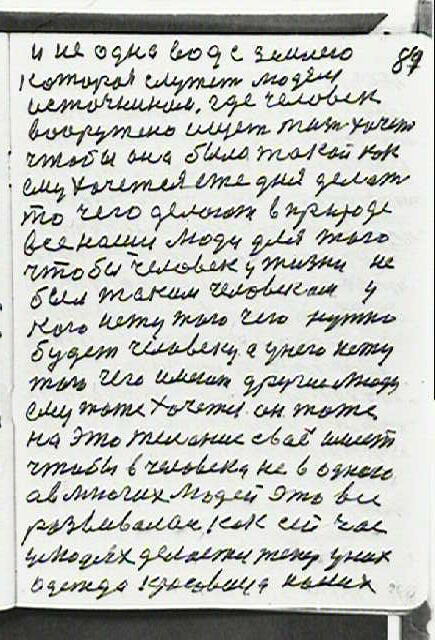 и не одна вода с землею 87
которая служит людям
источником, где человек
вооружено ищет жизнь хочет
чтобы она была такой как
ему хочется еже дня делать
то чего делают в природе
все наши люди для того
чтобы человек у жизни не
был таким человеком у
кого нету того чего нужно
будет человеку а у него нету
того чего имеют другие люди
ему тоже хочется он тоже
на это желание своё имеет
чтобы в человека не в одного
а в многих людей это все
развивалась как сей час
у людях делается тепер у них
одежда красовица